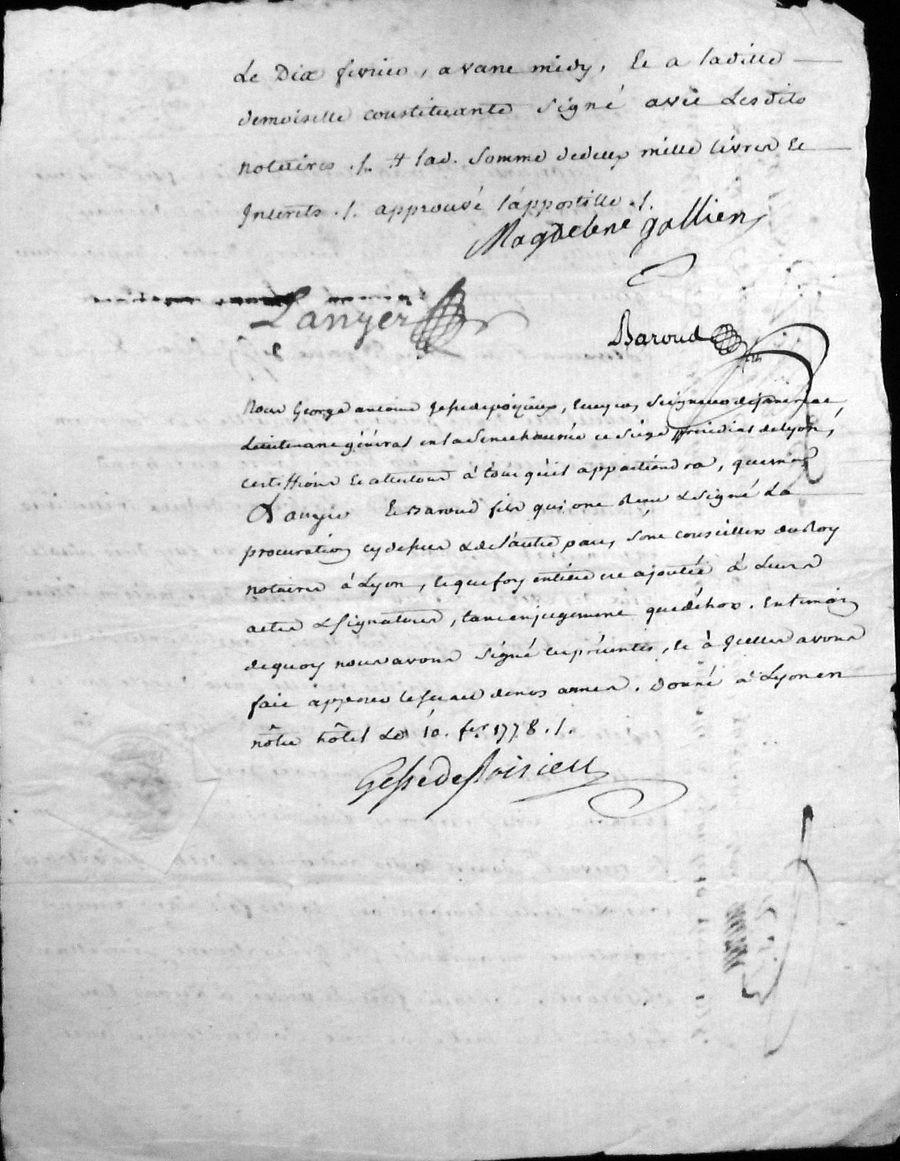 Le Dix fevrier, avant midy, Et a ladite
demoiselle constituante signé avec Lesdits
notaires ./. # lad. somme dedeux mille livres Et
Interets ./. approuvé l'appostille ./.
Magdelene gallien
Lanyer
Baroud
Nous George antoine Gesse de poizieux, Ecuyer, seigneur de
Lieutenant général en la Senechaussée et Siége Présidial de Lyon,
certiffions Et attestons à tous qu'il appartiendra, que
Lanyer Et Baroud fils qui ont Reçu & signé La
procuration cy dessus & de l'autre part, sont conseillers du Roy
notaires à Lyon, Et que foy entière est ajoutée à Leurs
actes & signatures, tant en jugement que déhors. En temoin
de quoy nous avons signé ces présentes, Et à Icelles avons
fait apposer le sceau de nos armes. Donné à Lyon en
nôtre hôtel Le 10. fer. 1778 ./.
Gesse de Poisieu